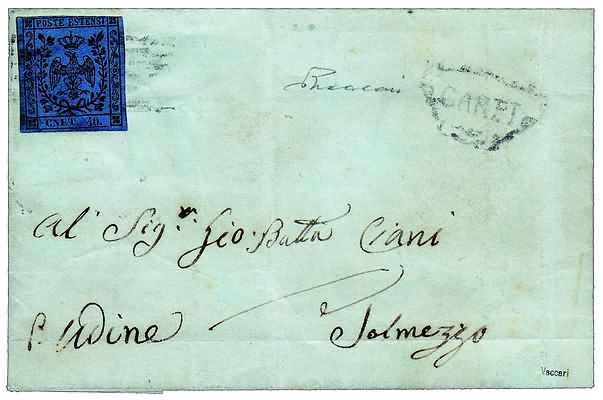 POSTE ESTENSI
CNET. 40.
CARPI
Al' Sig.r Gio: Batta Ciani
p. Udine
Tolmezzo
Vaccari